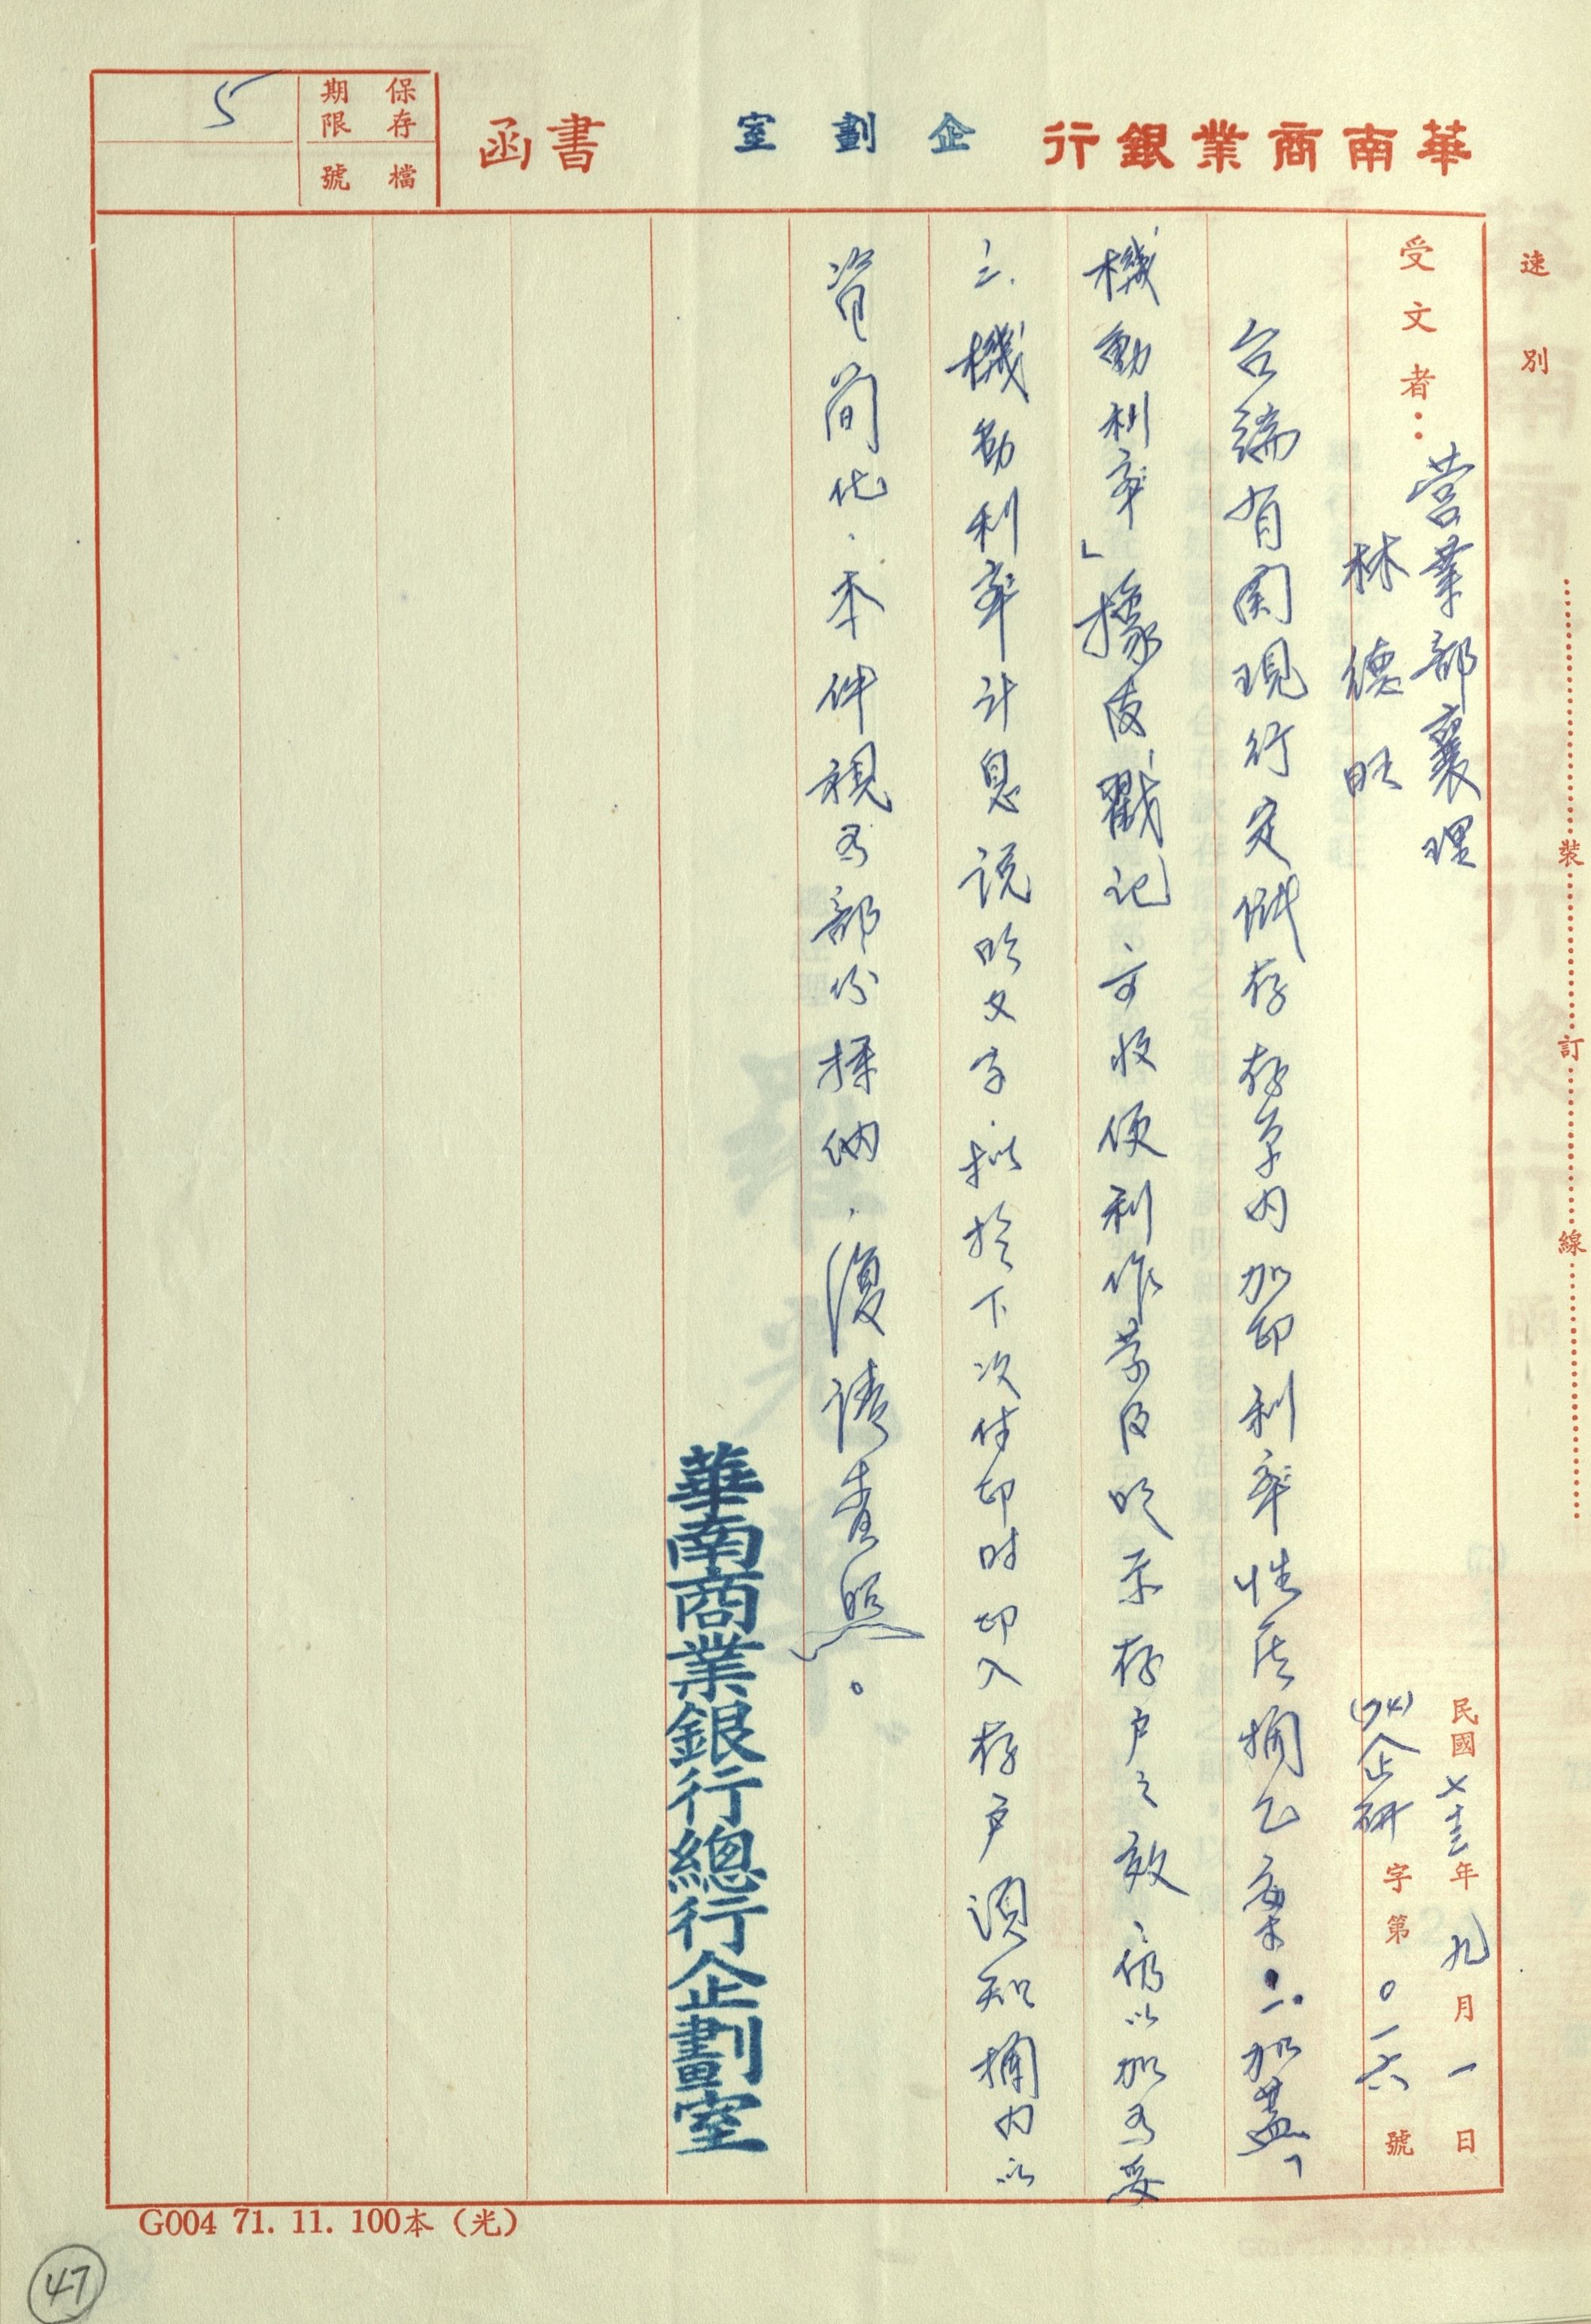 華南商業銀行 企劃室 書函
保存期限 5
檔號
速別
受文者：營業部襄理
林德旺
民國七十三年九月一日
(74)企研字第〇一六號
台端有関現行定儲存存單內加印利率性質欄乙案：一.加蓋「
機動利率」橡皮戳記、可收便利作業及明示存戶之效、仍以加為妥
二.機動利率計息說明文字.擬於下次付印時印入存戶須知欄內以
資简化.本件視為部份採納.復請查照。
華南商業銀行總行企劃室
裝 訂 線
G004 71. 11. 100本（光）
47